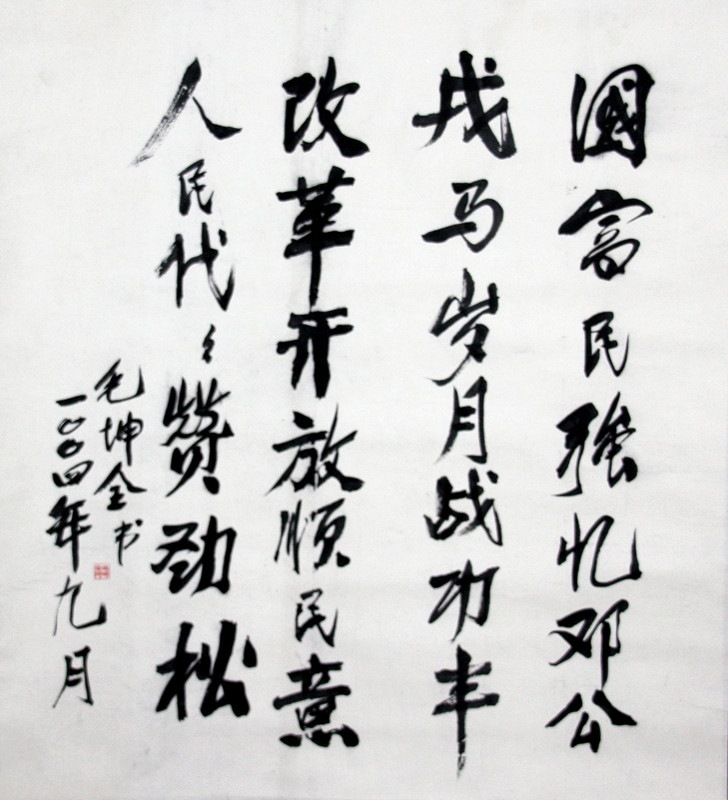 國富民強忆邓公
戎马岁月战功丰
改革开放顺民意
人民代々赞劲松
毛坤全书
二〇〇四年九月